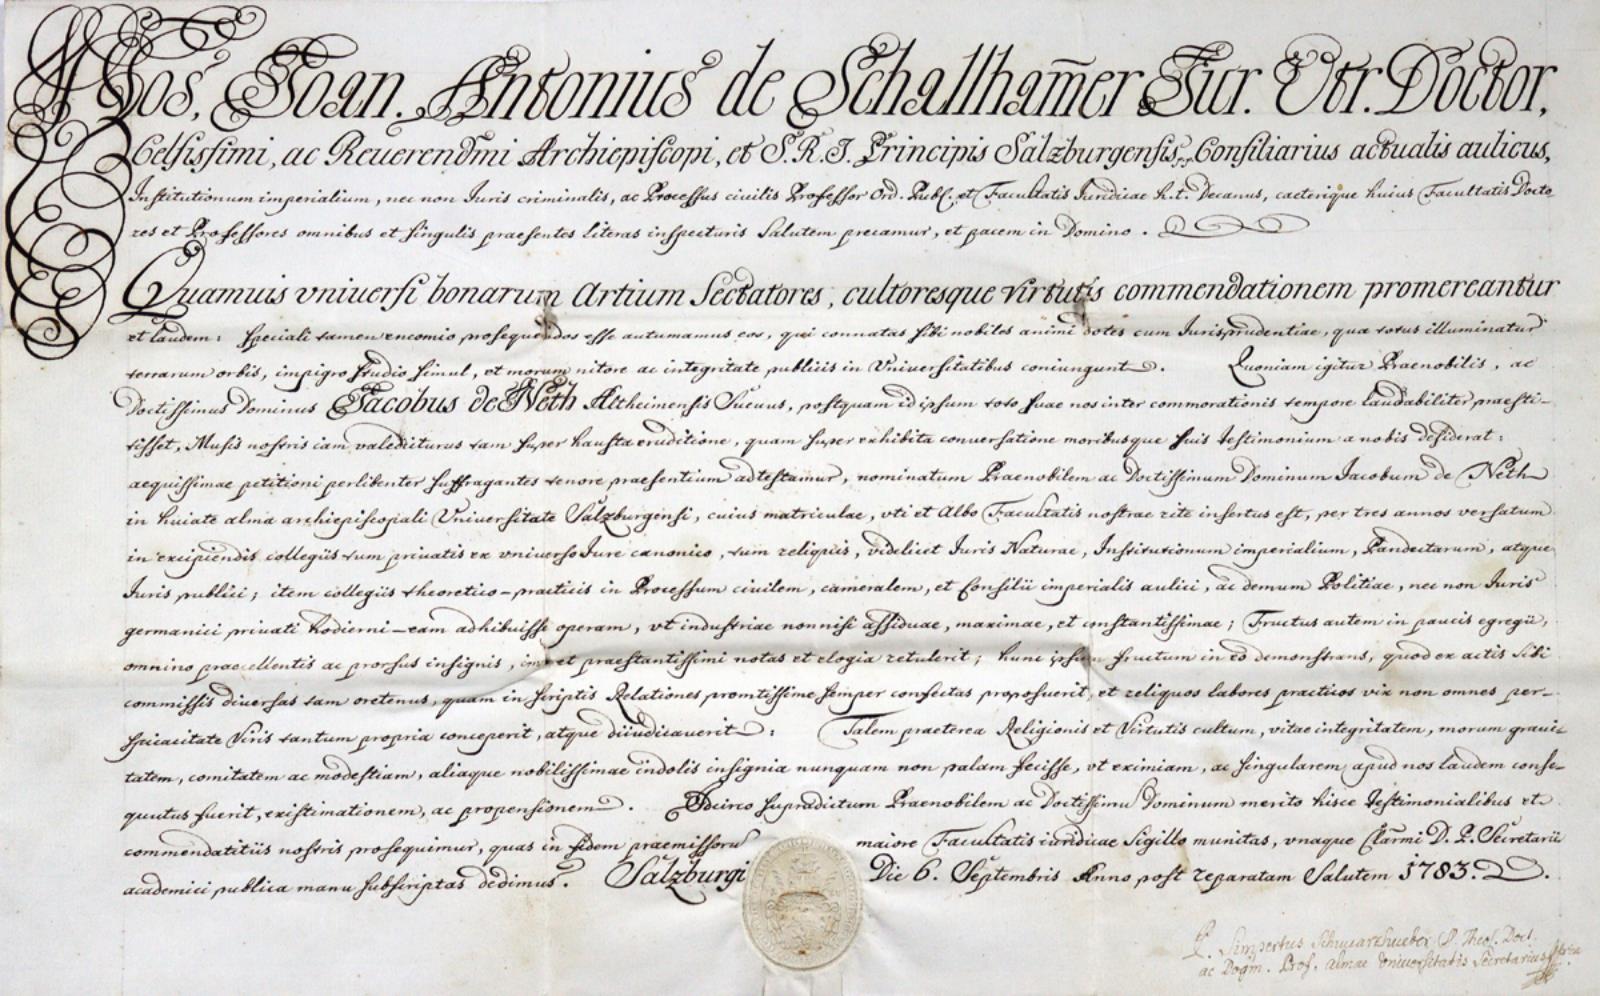 Nos, Joan. Antonius de Schallham̄er Jur. Vtr. Doctor,
Celsissimi, ac Reuerendm̄i Archiepiscopi, et S. R. J. Principis Salzburgensis Consiliarius actualis aulicus,
Institutionum imperialium, nec non Iuris criminalis, ac Processus ciuilis Professor Ord. Publ. et Facultatis Iuridicae h. t. Decanus, caeterique huius Facultatis Docto-
res et Professores omnibus et singulis praesentes literas inspecturis Salutem precamur, et pacem in Domino.
Quamuis vniuersi bonarum Artium Sectatores, cultoresque virtutis commendationem promereantur
et laudem: speciali tamen encomio prosequendos esse autumamus eos, qui connatas sibi nobiles animi dotes cum Iurisprudentiae, qua totus illuminatur
terrarum orbis, impigro studio simul, et morum nitore ac integritate publicis in Vniuersitatibus coniungunt. Quoniam igitur Praenobilis, ac
Doctissimus Dominus Jacobus de Neth Altheimensis Sueuus, postquam id ipsum toto suae nos inter commorationis tempore laudabiliter praesti-
tisset, Musis nostris iam valedicturus tam super hausta eruditione, quam super exhibita conuersatione moribusque suis testimonium a nobis desiderat:
aequissimae petitioni perlibenter suffragantes tenore praesentium adtestamur, nominatum Praenobilem ac Doctissimum Dominum Iacobum de Neth
in huiate alma archiepiscopali Vniuersitate Salzburgensi, cuius matriculae, vti et Albo Facultatis nostrae rite insertus est, per tres annos versatum
in excipiendis collegiis tum priuatis ex vniuerso Iure canonico, tum reliquis, videlicet Iuris Naturae, Institutionum imperialium, Pandectarum, atque
Iuris publici; item collegiis theoretico-practicis in Processum ciuilem, cameralem, et Consilii imperialis aulici, ac demum Politiae, nec non Iuris
germanici priuati hodierni eam adhibuisse operam, vt industriae nonnisi assiduae, maximae, et constantissimae; Fructus autem in paucis egregii,
omnino praecellentis ac prorsus insignis, imo et praestantissimi notas et elogia retulerit; hunc ipsum fructum in eo demonstrans, quod ex actis sibi
commissis diuersas tam oretenus, quam in scriptis Relationes promtissime semper confectas proposuerit, et reliquos labores practicos vix non omnes per-
spicacitate Viris tantum propria conceperit, atque diiudicauerit: Talem praeterea Religionis et Virtutis cultum, vitae integritatem, morum graui-
tatem, comitatem ac modestiam, aliaque nobilissimae indolis insignia nunquam non palam fecisse, vt eximiam, ac singularem apud nos laudem conse-
quutus fuerit, existimationem, ac propensionem. Idcirco supradictum Praenobilem ac Doctissimū Dominum merito hisce Testimonialibus et
commendatitiis nostris prosequimur, quas in fidem praemissorū maiore Facultatis iuridicae Sigillo munitas, vnaque Clarm̄i D. P. Secretarii
academici publica manu subscriptas dedimus. Salzburgi Die 6. Septembris Anno post reparatam Salutem 1783.
P. Simpertus Schwarzhueber SS. Theol. Doct.
ac Dogm. Prof. almae Vniversitatis Secretarius